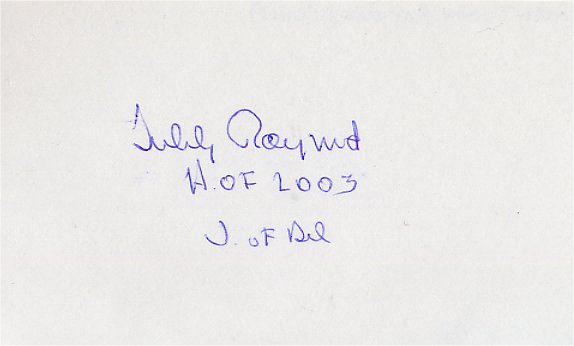 Tubby Raymond
H.OF 2003
U. of Del